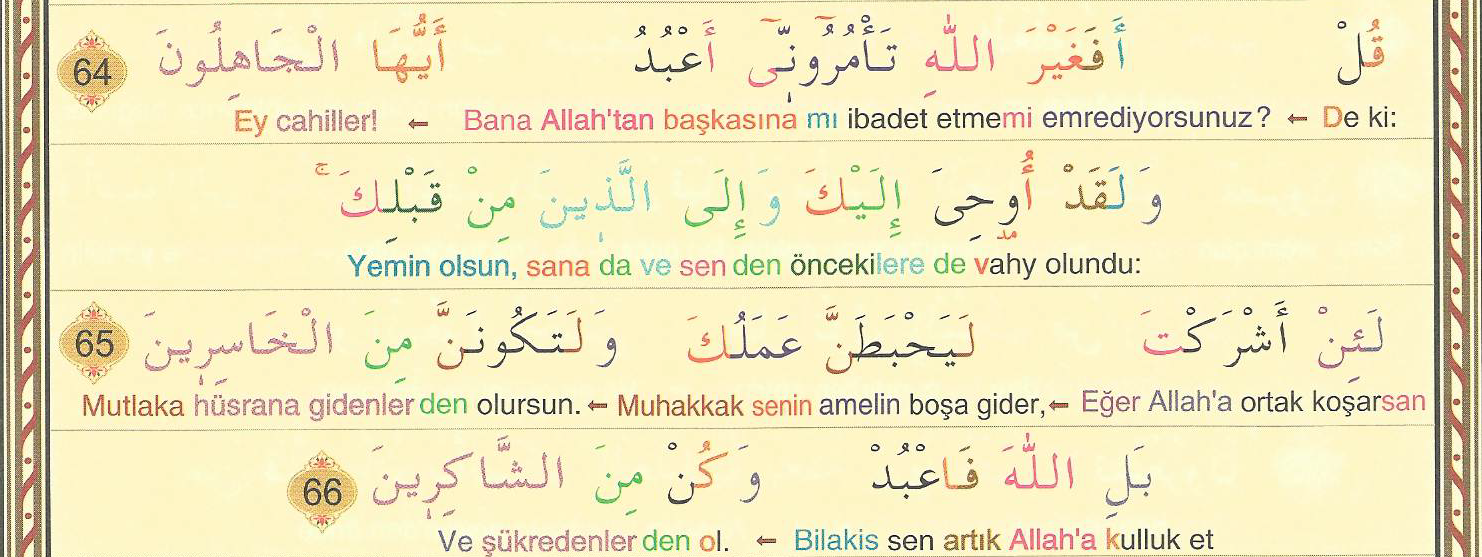 قُلْ أَفَغَيْرَ اللّٰهِ تَأْمُرُٓونّ۪ٓى أَعْبُدُ أَيُّهَا الْجَاهِلُونَ 64
De ki: ← Bana Allah'tan başkasına mı ibadet etmemi emrediyorsunuz? ← Ey cahiller!
وَ لَقَدْ أُوحِىَ إِلَيْكَ وَ إِلَى الَّذ۪ينَ مِنْ قَبْلِكَ ۚ
Yemin olsun, sana da ve sen den öncekilere de vahy olundu:
لَئِنْ أَشْرَكْتَ لَيَحْبَطَنَّ عَمَلُكَ وَ لَتَكُونَنَّ مِنَ الْخَاسِر۪ينَ 65
Eğer Allah'a ortak koşarsan ← Muhakkak senin amelin boşa gider, ← Mutlaka hüsrana gidenler den olursun.
بَلِ اللّٰهَ فَاعْبُدْ وَ كُنْ مِنَ الشَّاكِر۪ينَ 66
Bilakis sen artık Allah'a kulluk et ← Ve şükredenler den ol.